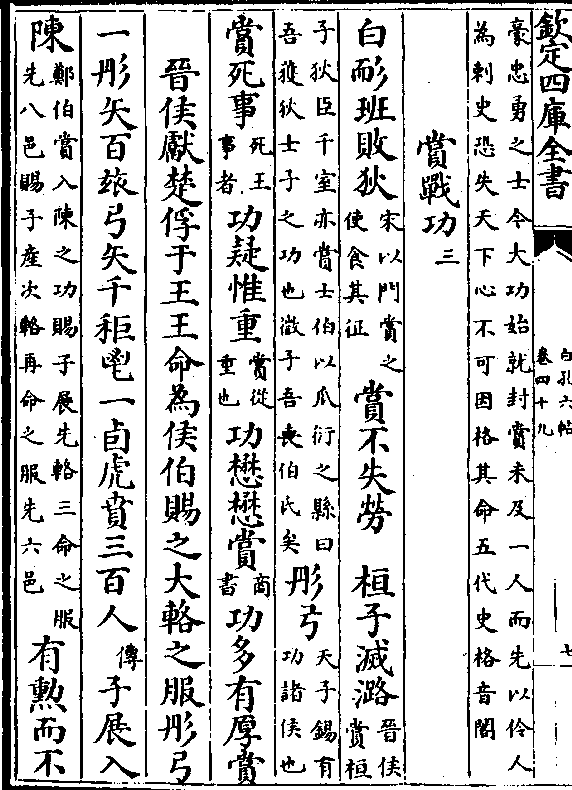 欽定四庫全書
白孔六帖
卷四十九
七
豪忠勇之士今大功始就封賞未及一人而先以伶人
為刺史恐失天下心不可因格其命五代史格音閣
賞戰功三
白彤班敗狄宋以門賞之使食其征賞不失勞 桓子滅潞晉侯賞桓
子狄臣千室亦賞士伯以瓜衍之縣曰吾獲狄士子之功也微子吾喪伯氏矣彤弓天子錫有功諸侯也
賞死事死王事者功疑惟重賞從重也功懋懋賞商書功多有厚賞
晉侯獻楚俘于王王命為侯伯賜之大輅之服彤弓
一彤矢百玈弓矢千秬鬯一卣虎賁三百人傳子展入
陳鄭伯賞入陳之功賜子展先輅三命之服先八邑賜子產次輅再命之服先六邑有勲而不